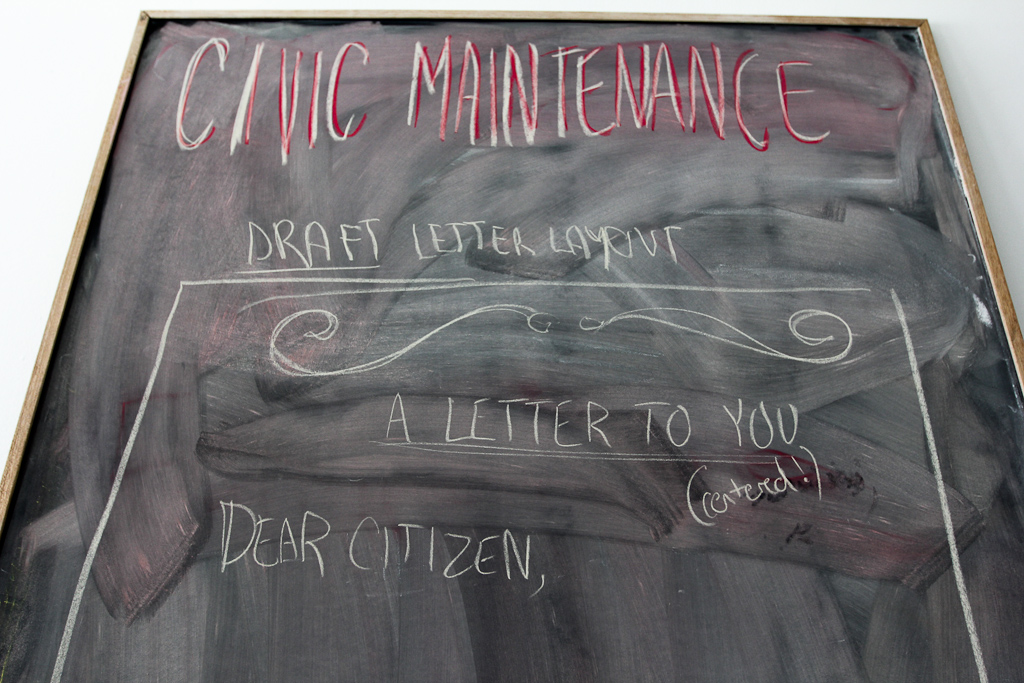 CIVIC MAINTENANCE
DRAFT LETTER LAYOUT
A LETTER TO YOU
(centered!)
DEAR CITIZEN,